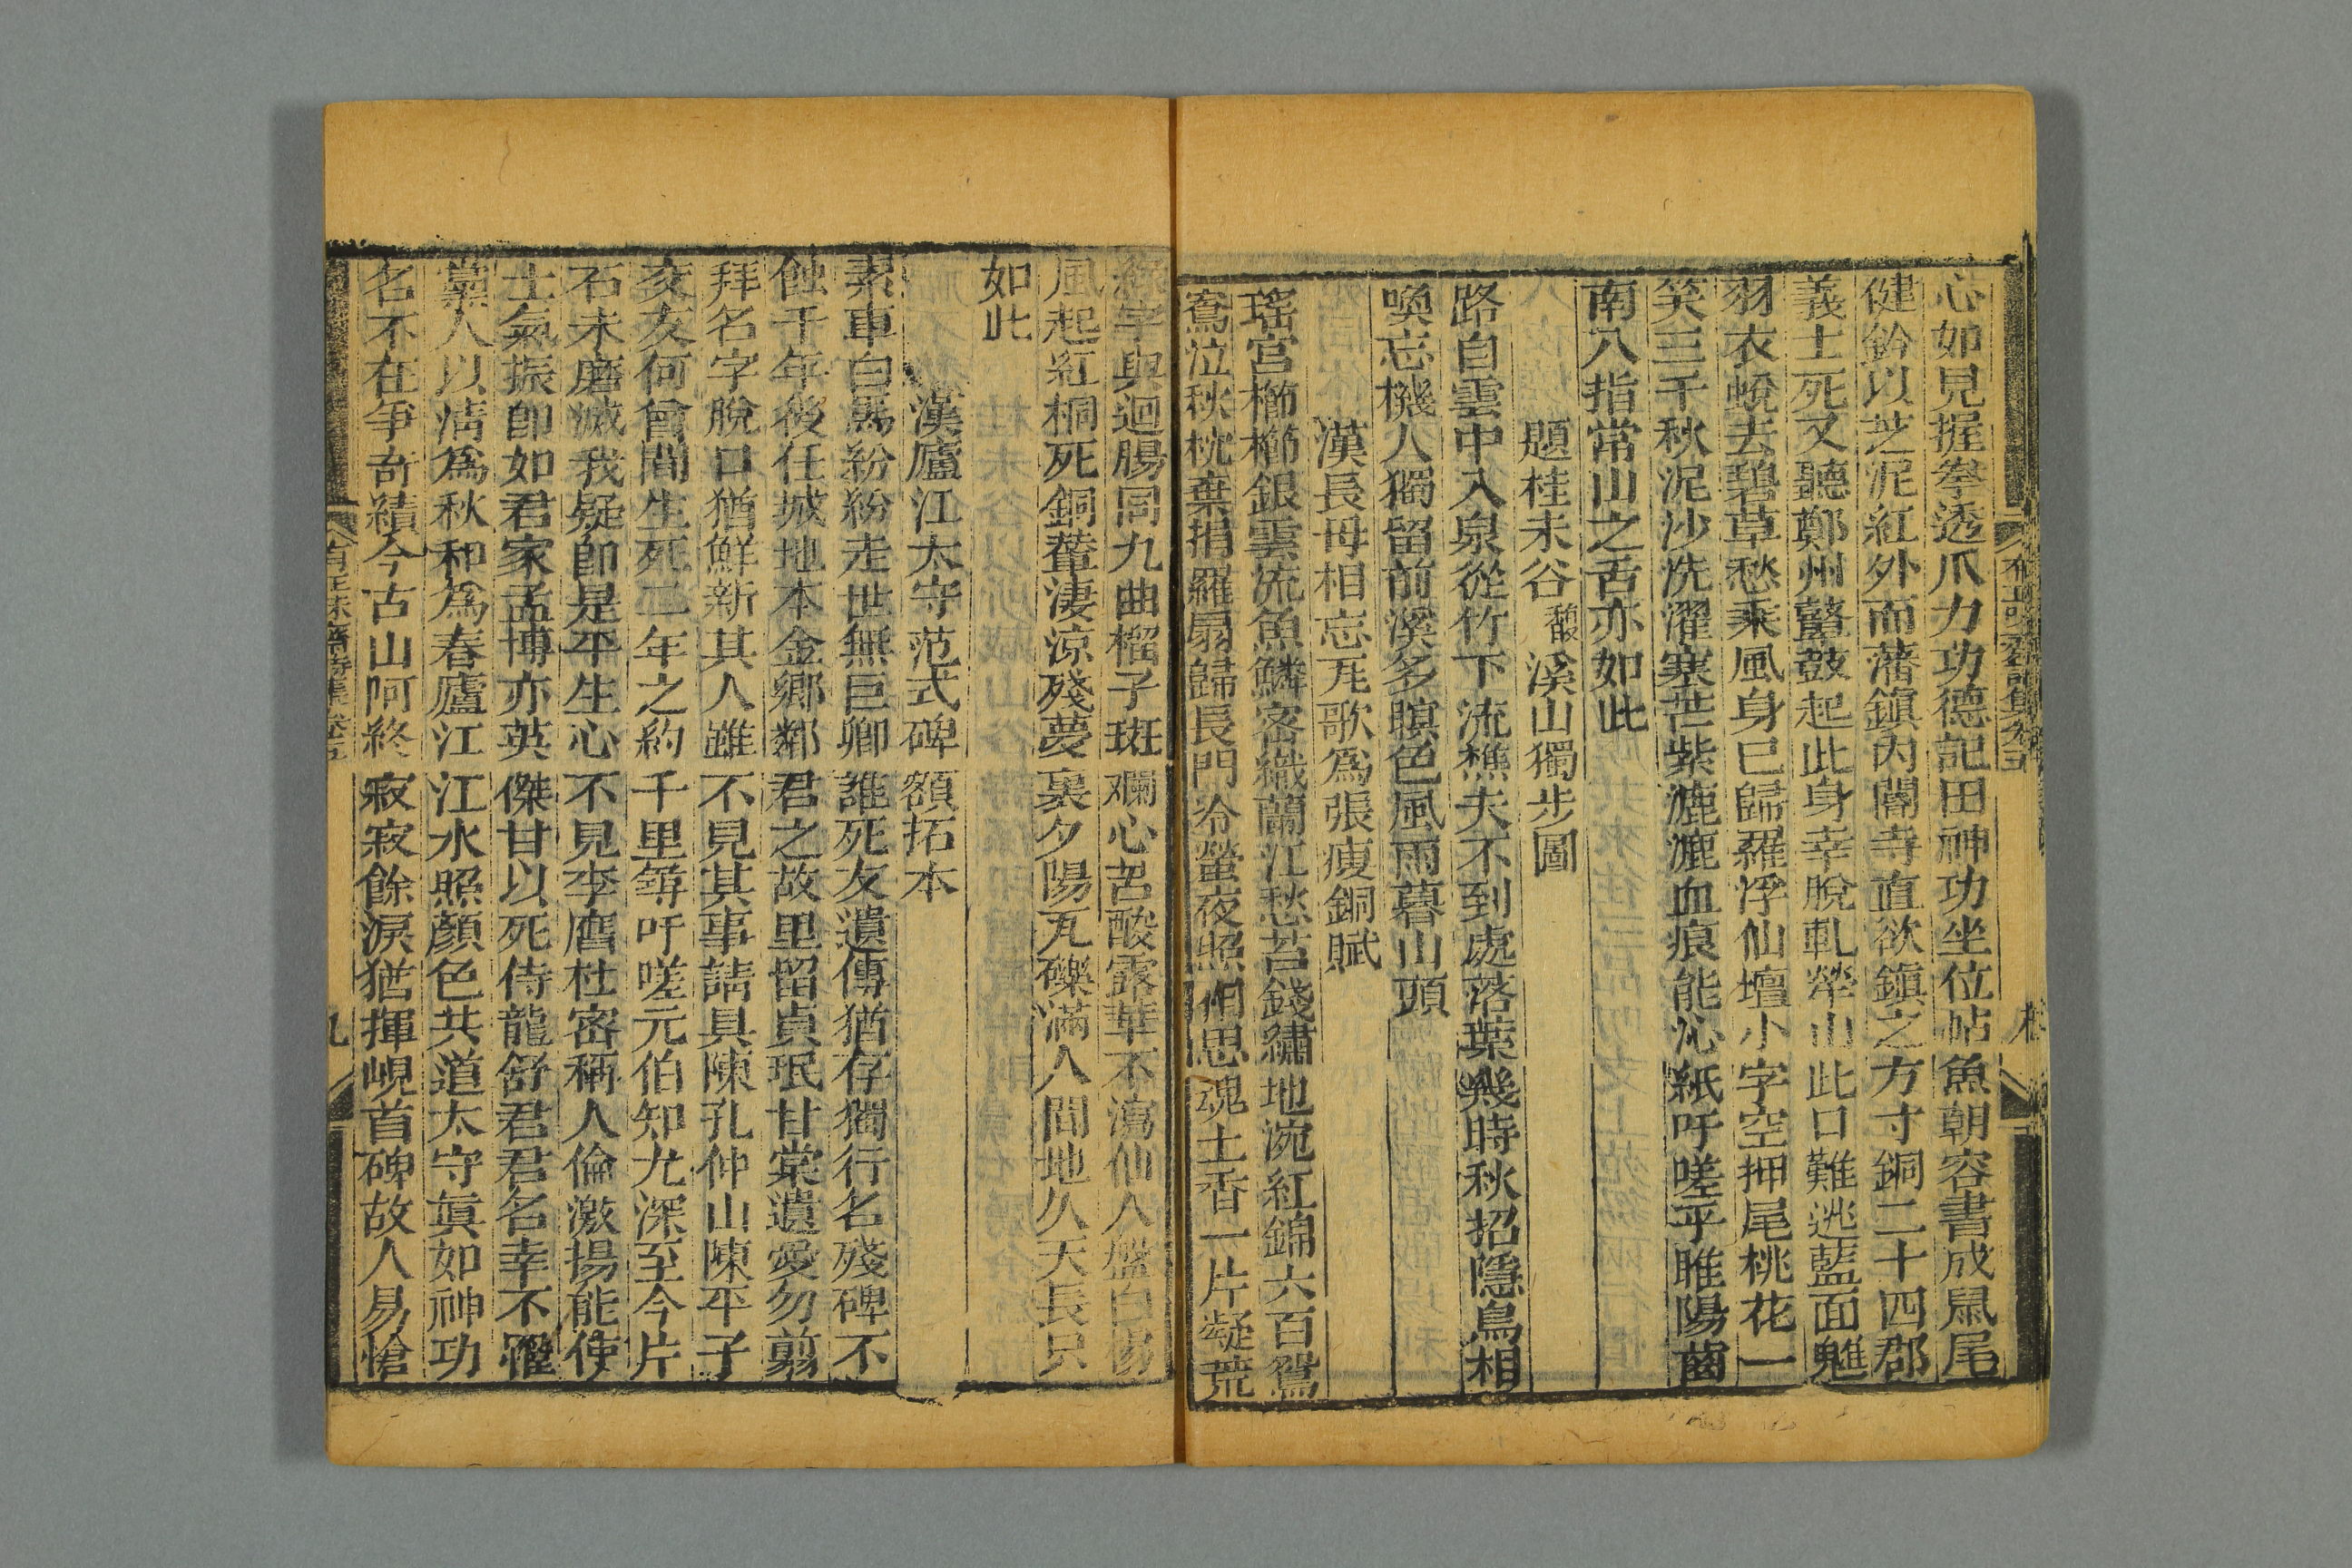 心如見握拳透爪力功德記田神功坐位帖魚朝容書成鼠尾
健鈐以芝泥紅外而藩鎮內閹寺直欲鎮之方寸銅二十四郡
義士死又聽鄭州鼙鼓起此身幸脫軋犖山此口難逃藍面魋
羽衣蛻去碧草愁乘風身已歸羅浮仙壇小字空押尾桃花一
笑三千秋泥沙洗濯寒芒紫漉漉血痕能沁紙吁嗟乎睢陽齒
南八指常山之舌亦如此
題桂未谷馥溪山獨步圖
路自雲中入泉從竹下流樵夫不到處落葉幾時秋招隱鳥相
喚忘機人獨留前溪多暝色風雨暮山頭
漢長毋相忘瓦歌為張瘦銅賦
瑤宮櫛櫛銀雲流魚鱗密織蘭江愁苔錢繡地涴紅錦六百鴛
鴦泣秋枕棄捐羅扇歸長門冷螢夜照相思魂土香一片凝荒
字與迴腸同九曲榴子斑斕心苦酸露華不瀉仙人盤白楊
風起紅桐死銅輦淒涼殘夢裏夕陽瓦礫滿人間地久天長只
如此
漢廬江太守范式碑額拓本
素車白馬紛紛走世無巨卿誰死友遺傳猶存獨行名殘碑不
蝕千年後任城地本金鄉鄰君之故里留貞珉甘棠遺愛勿翦
拜名字脫口猶鮮新其人雖不見其事請具陳孔仲山陳平子
交友何曾間生死二年之約千里尋吁嗟元伯知尤深至今片
石未磨滅我疑卽是平生心不見李膺杜密稱人倫激揚能使
士氣振卽如君家孟博亦英傑甘以死侍龍舒君君名幸不罹
黨人以清為秋和為春廬江江水照顏色共道太守眞如神功
名不在爭奇績今古山阿終寂寂餘淚猶揮峴首碑故人易愴
九